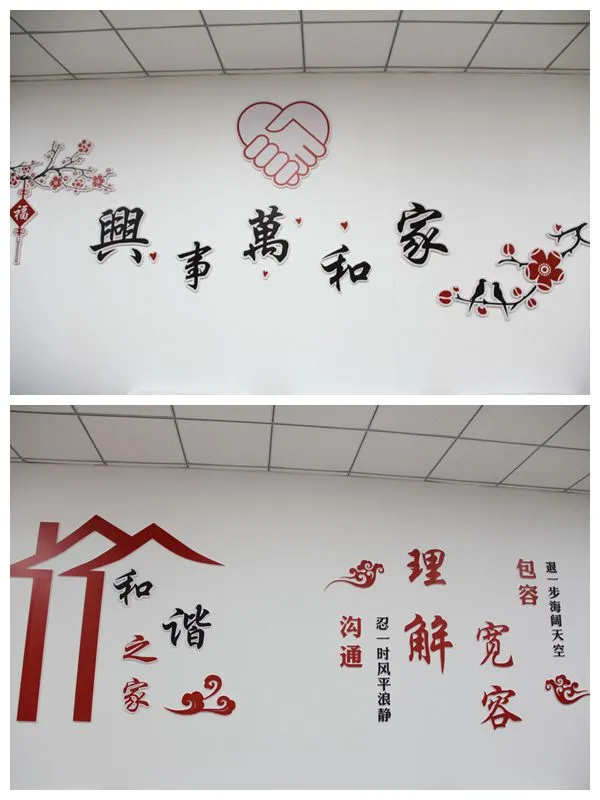 福
家和萬事興
和谐
之家
理解
宽容
包容
退一步海阔天空
沟通
忍一时风平浪静